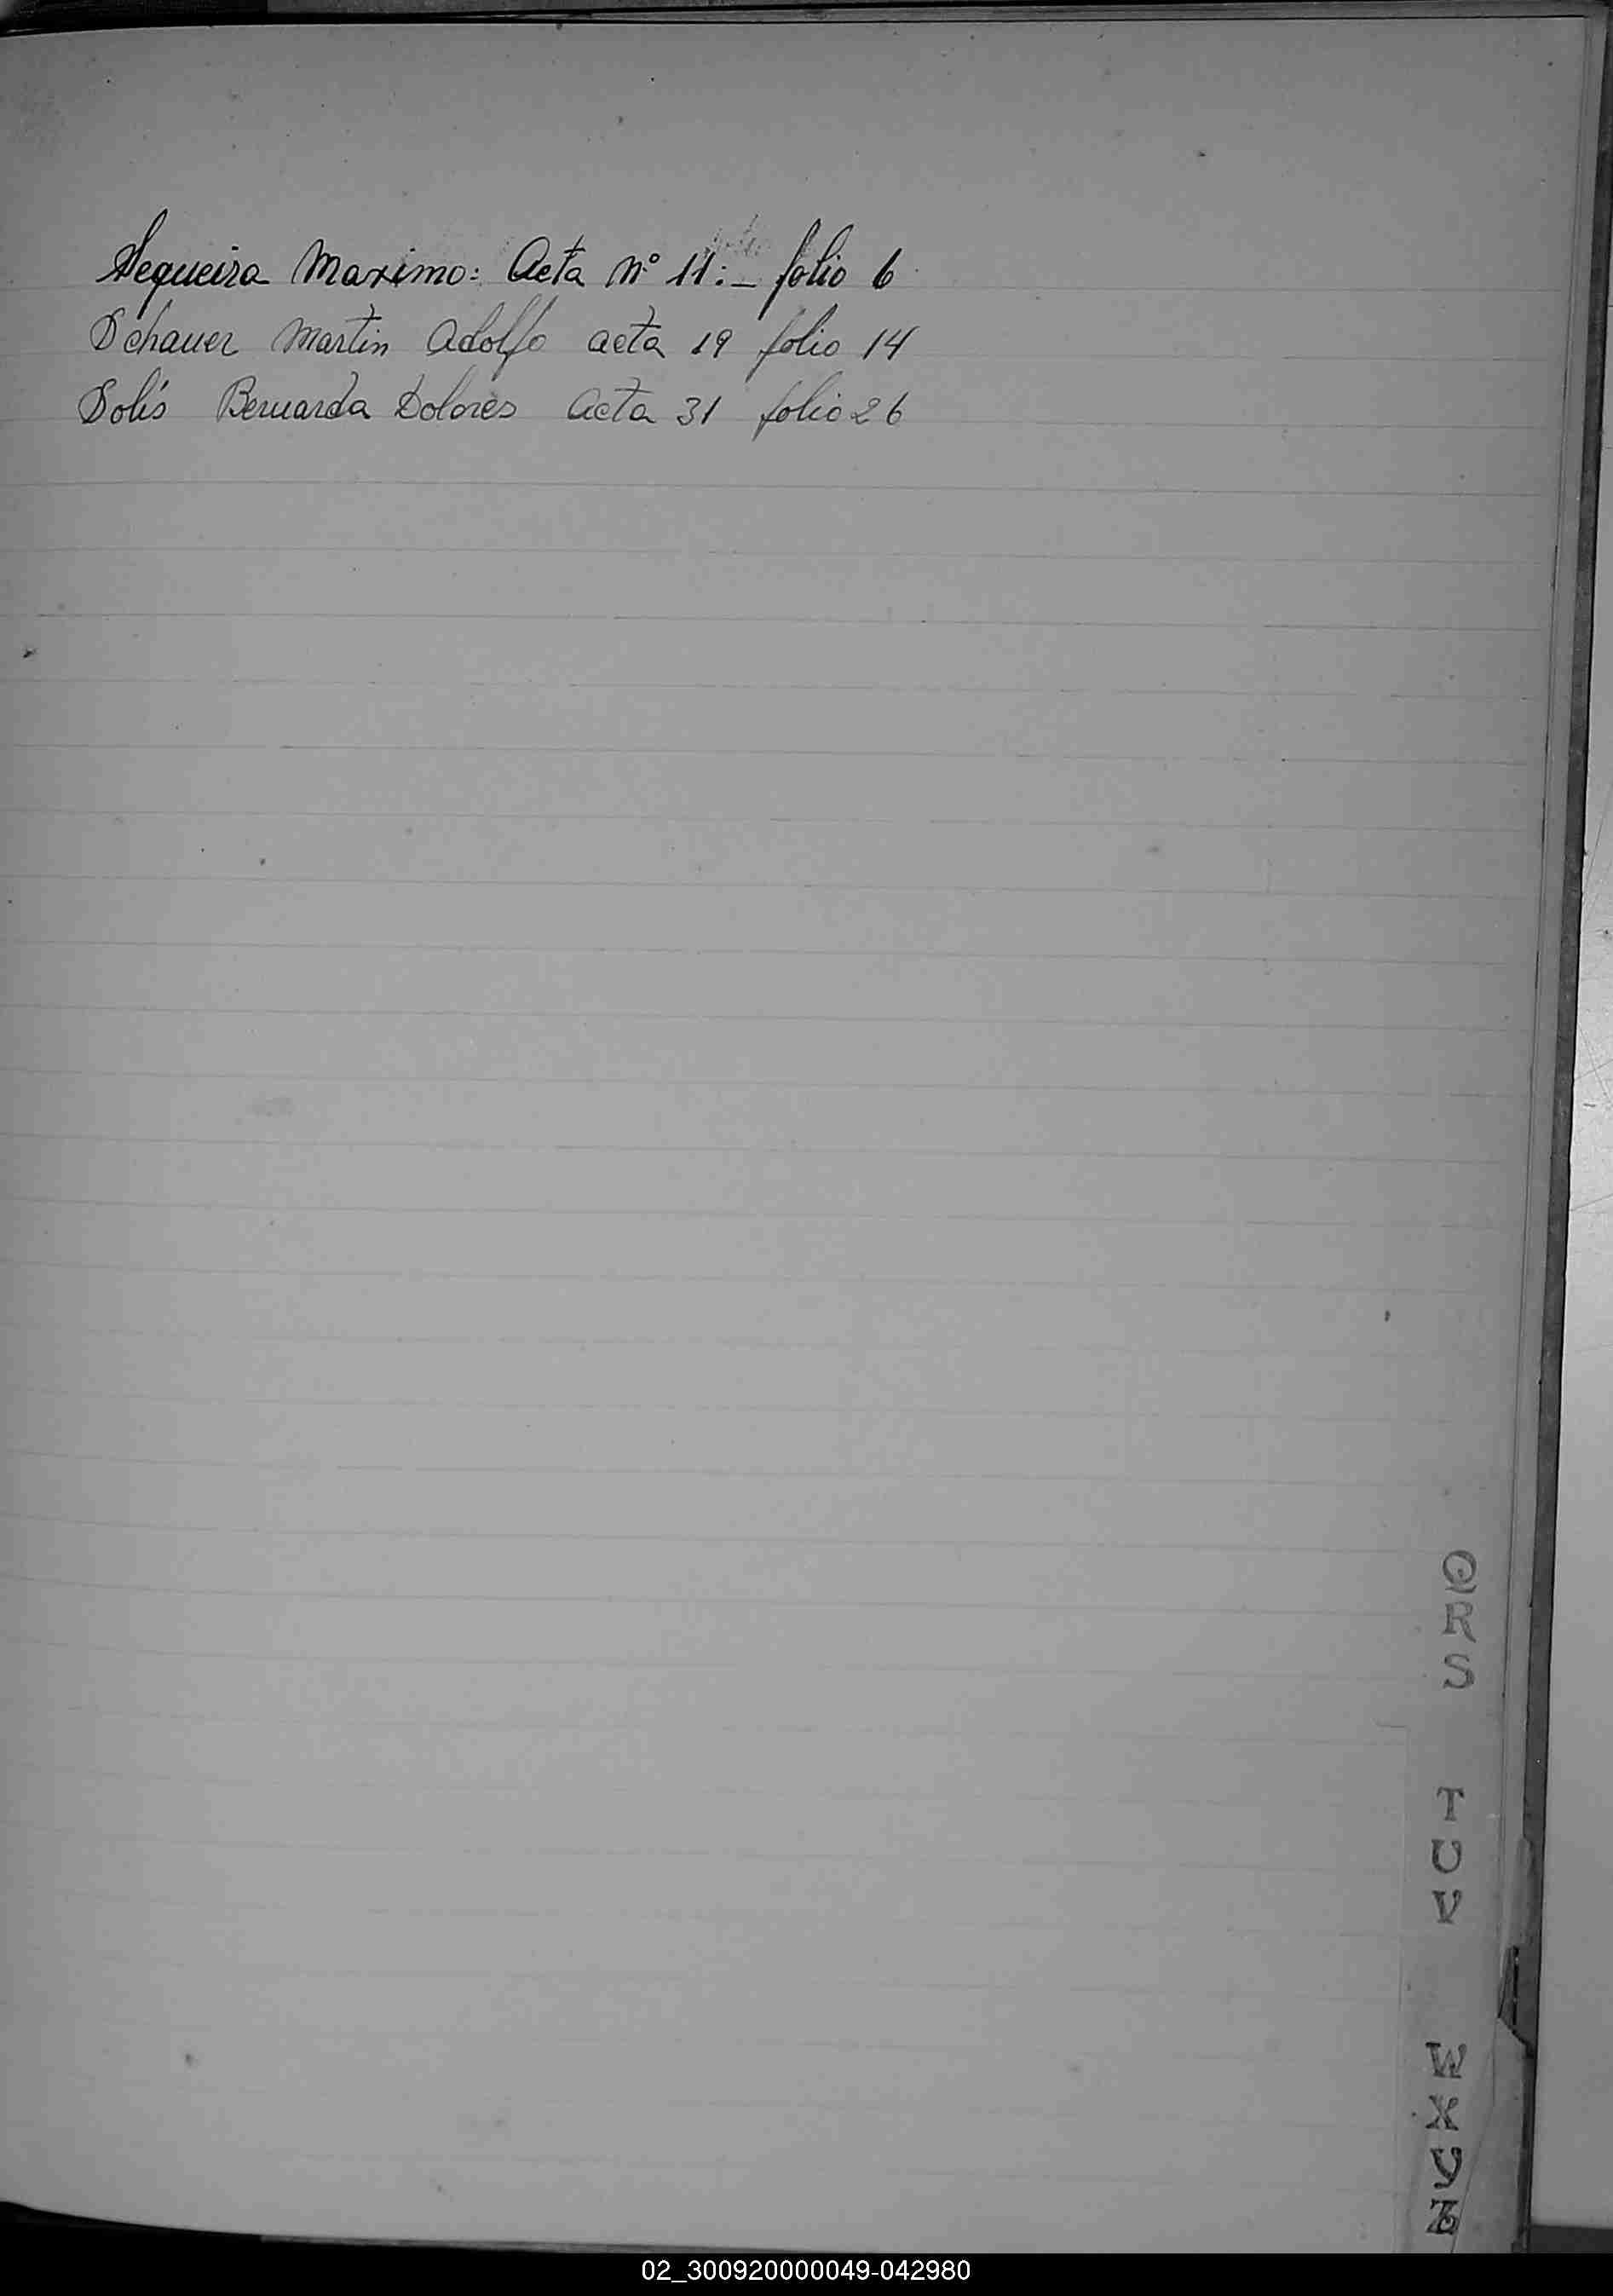 Sequeira Maximo: Acta nº 11:- folio 6
Schauer Martin Adolfo acta 19 folio 14
Solís Bernarda Dolores Acta 31 folio 26
Q
R
S
T
U
V
W
X
Y
Z
02_300920000049-042980